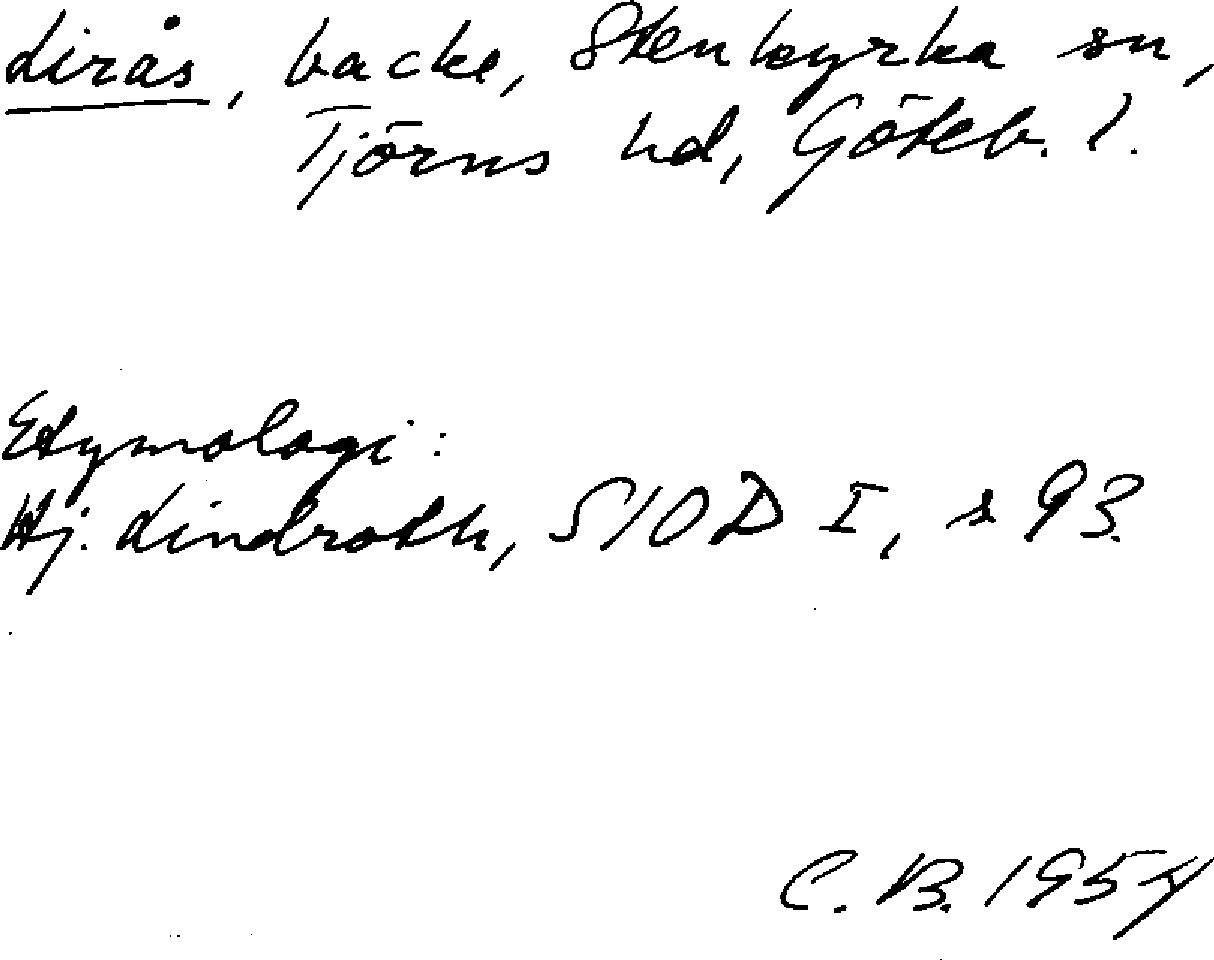 Lirås, backe, Stenkyrka sn,
Tjörns hd, Göteb. l.
Etymologi:
Hj. Lindroth, SIOD I, s 93.
C. B. 1954